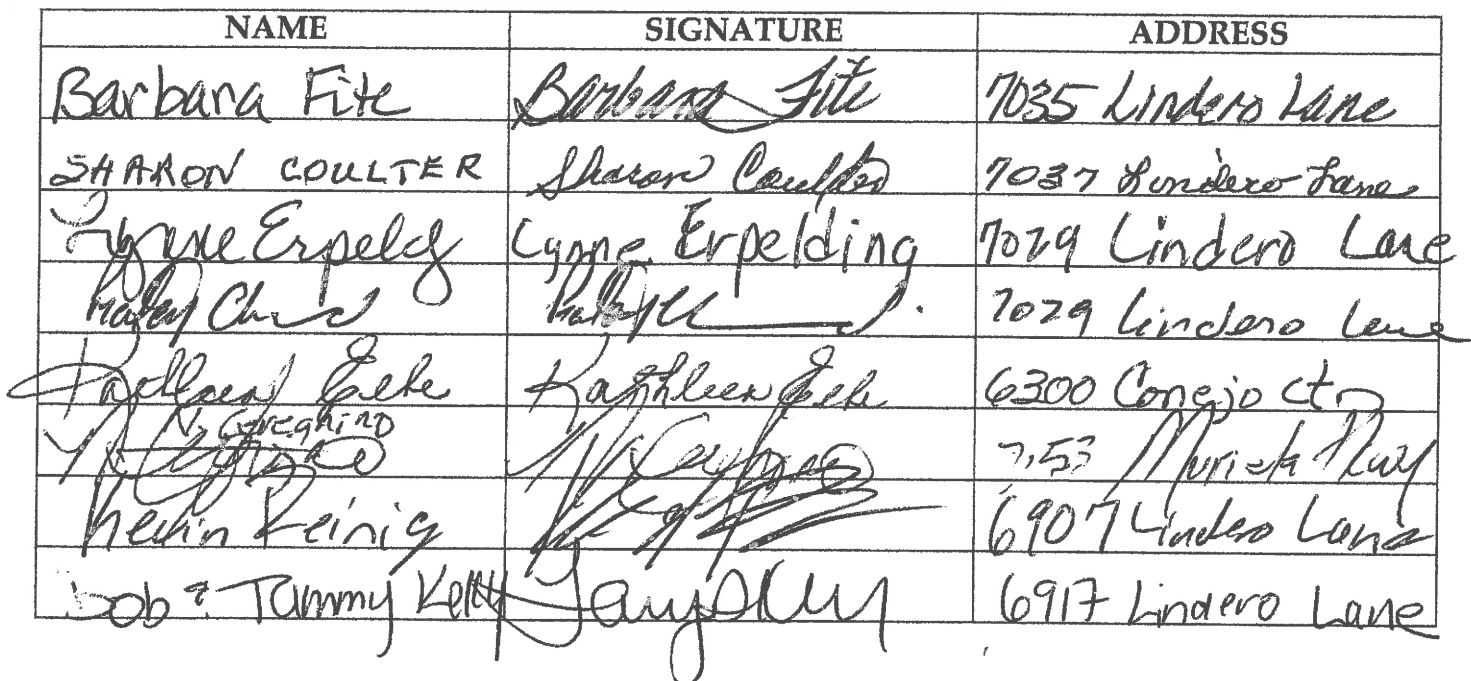 NAME SIGNATURE ADDRESS
Barbara Fite Barbara Fite 7035 Lindero Lane
SHARON COULTER Sharon Coulter 7037 Lindero Lane
Lynne Erpeldg Lynne Erpelding 7029 Lindero Lane
7029 Lindero Lane
Kathleen Kathleen 6300 Conejo Ct
N. Cereghino Murieta Pkwy
Kevin Reinig 6907 Lindero Lane
Bob & Tammy Kelly 6917 Lindero Lane